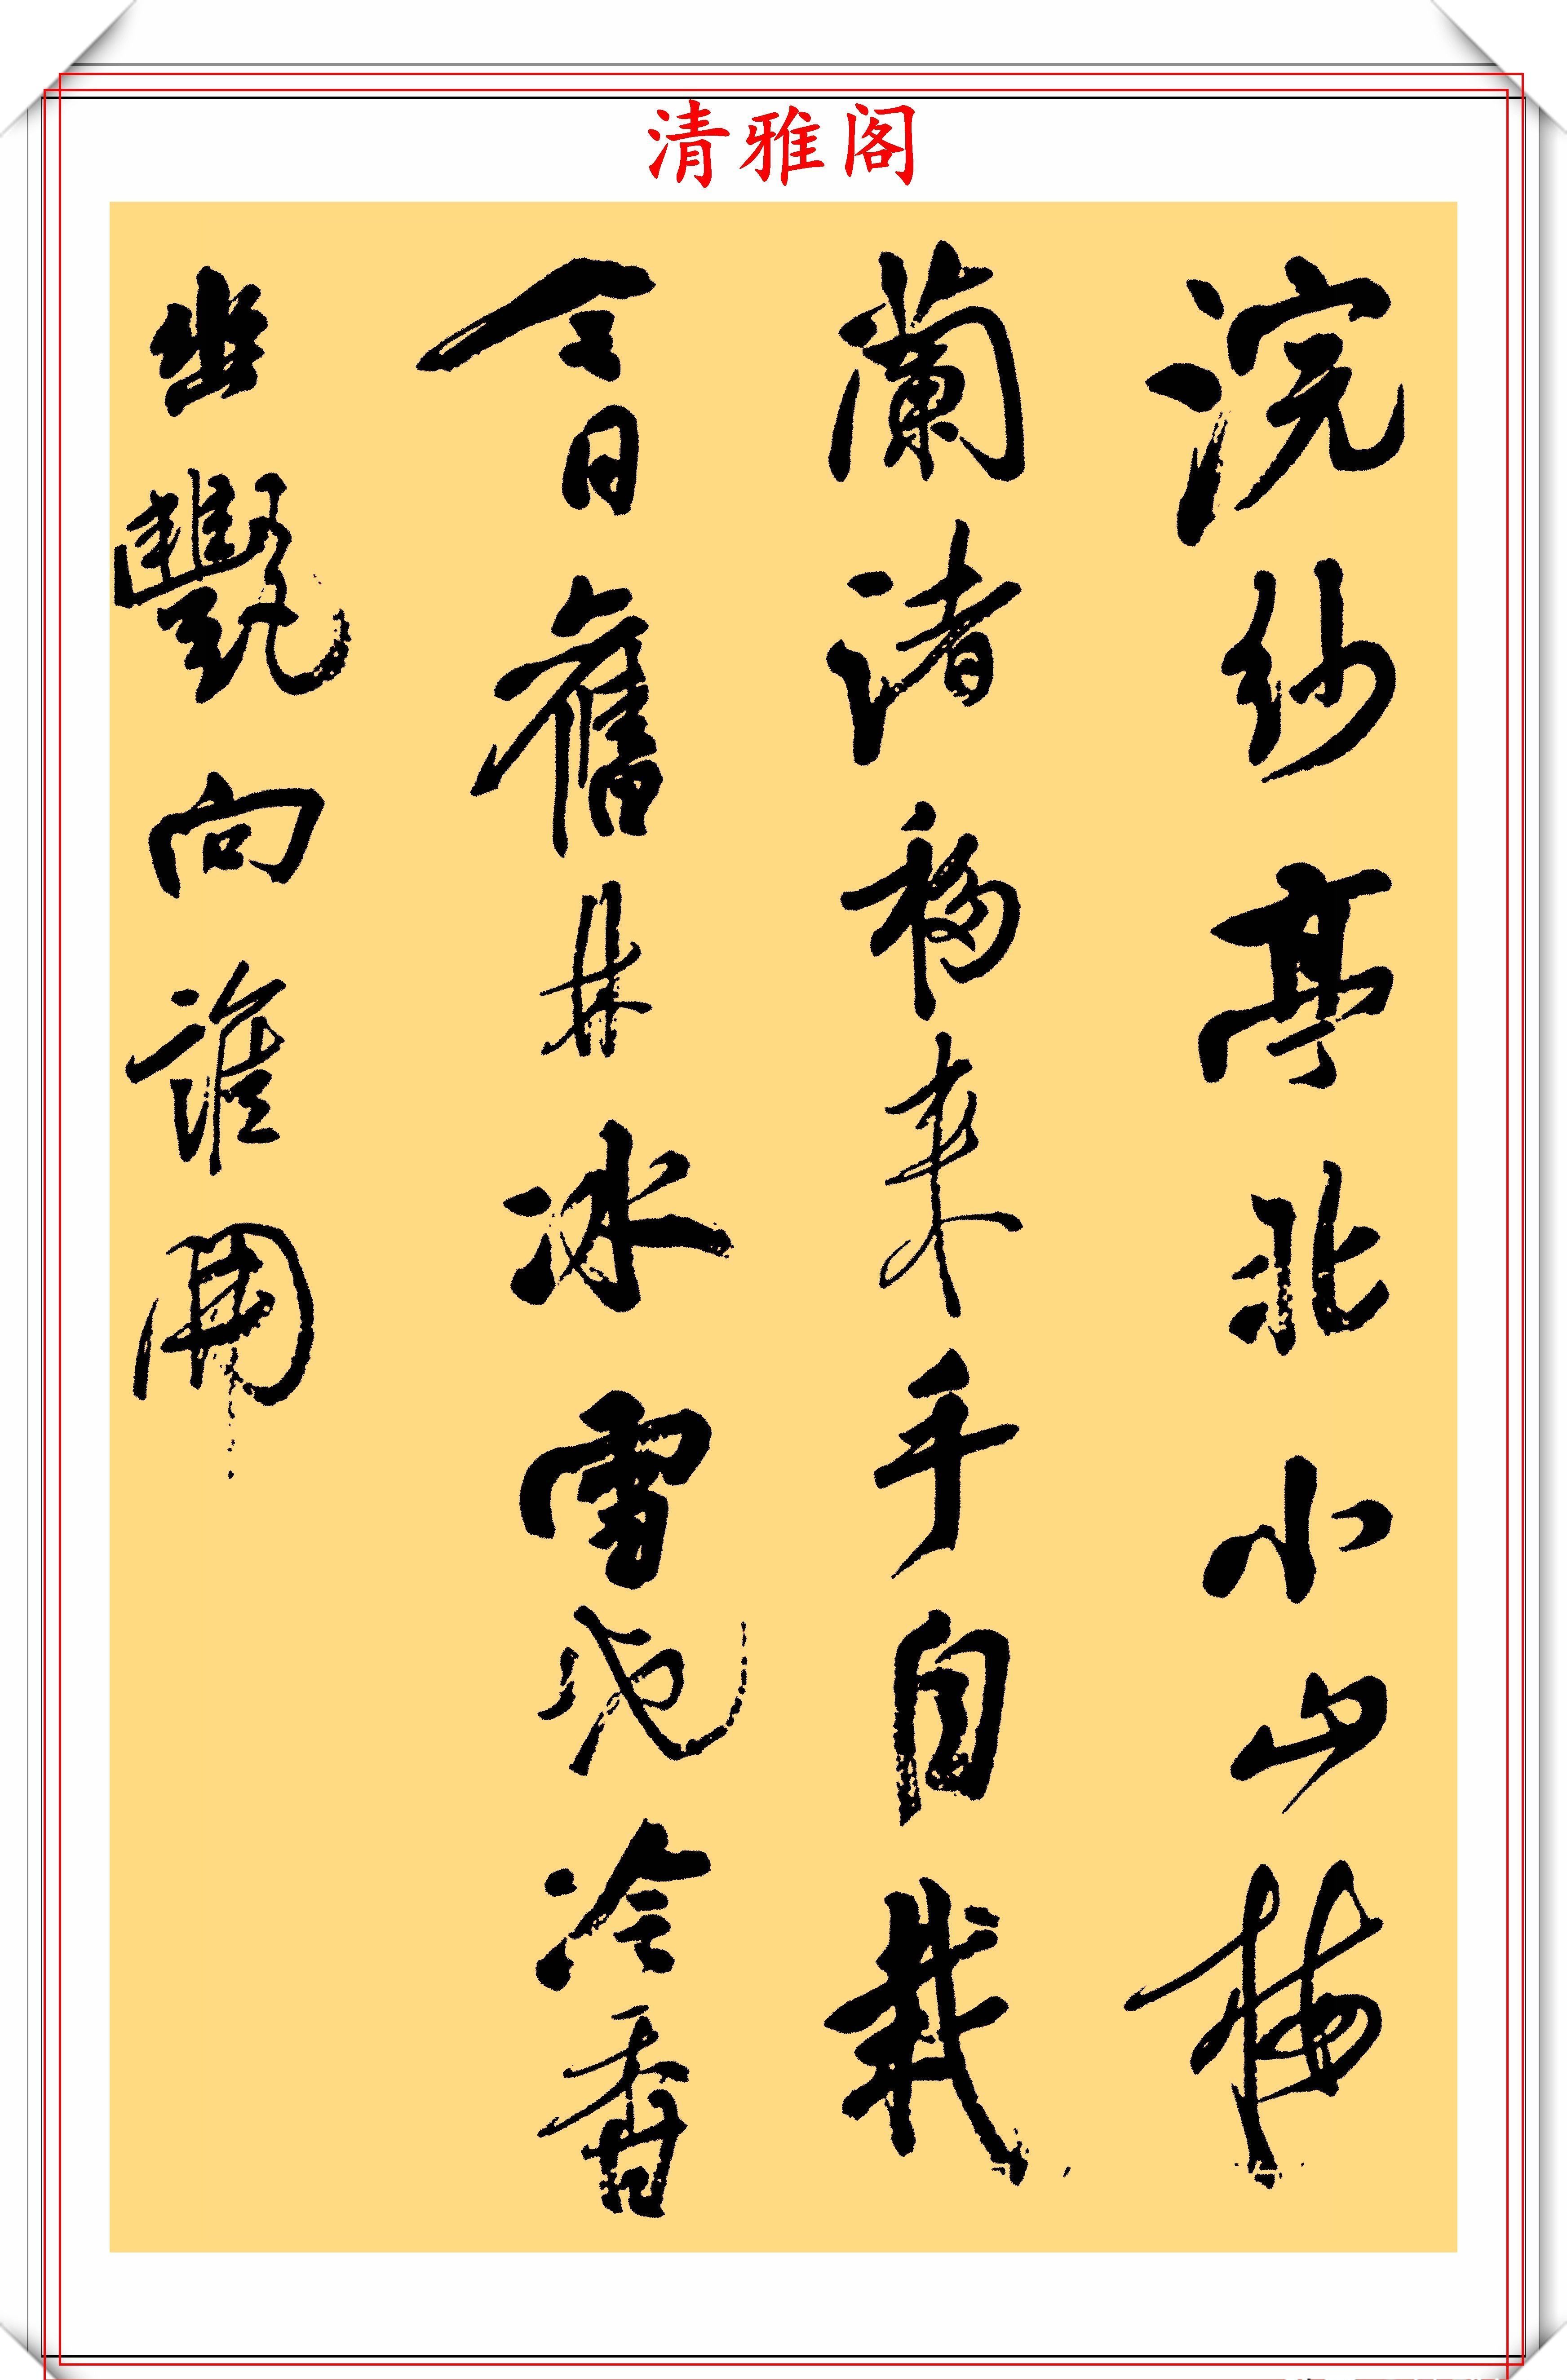 清雅阁
浣紗亭北小山梅
蘭渚移来手自栽
今日舊林冰雪地冷香
幽艷向誰開